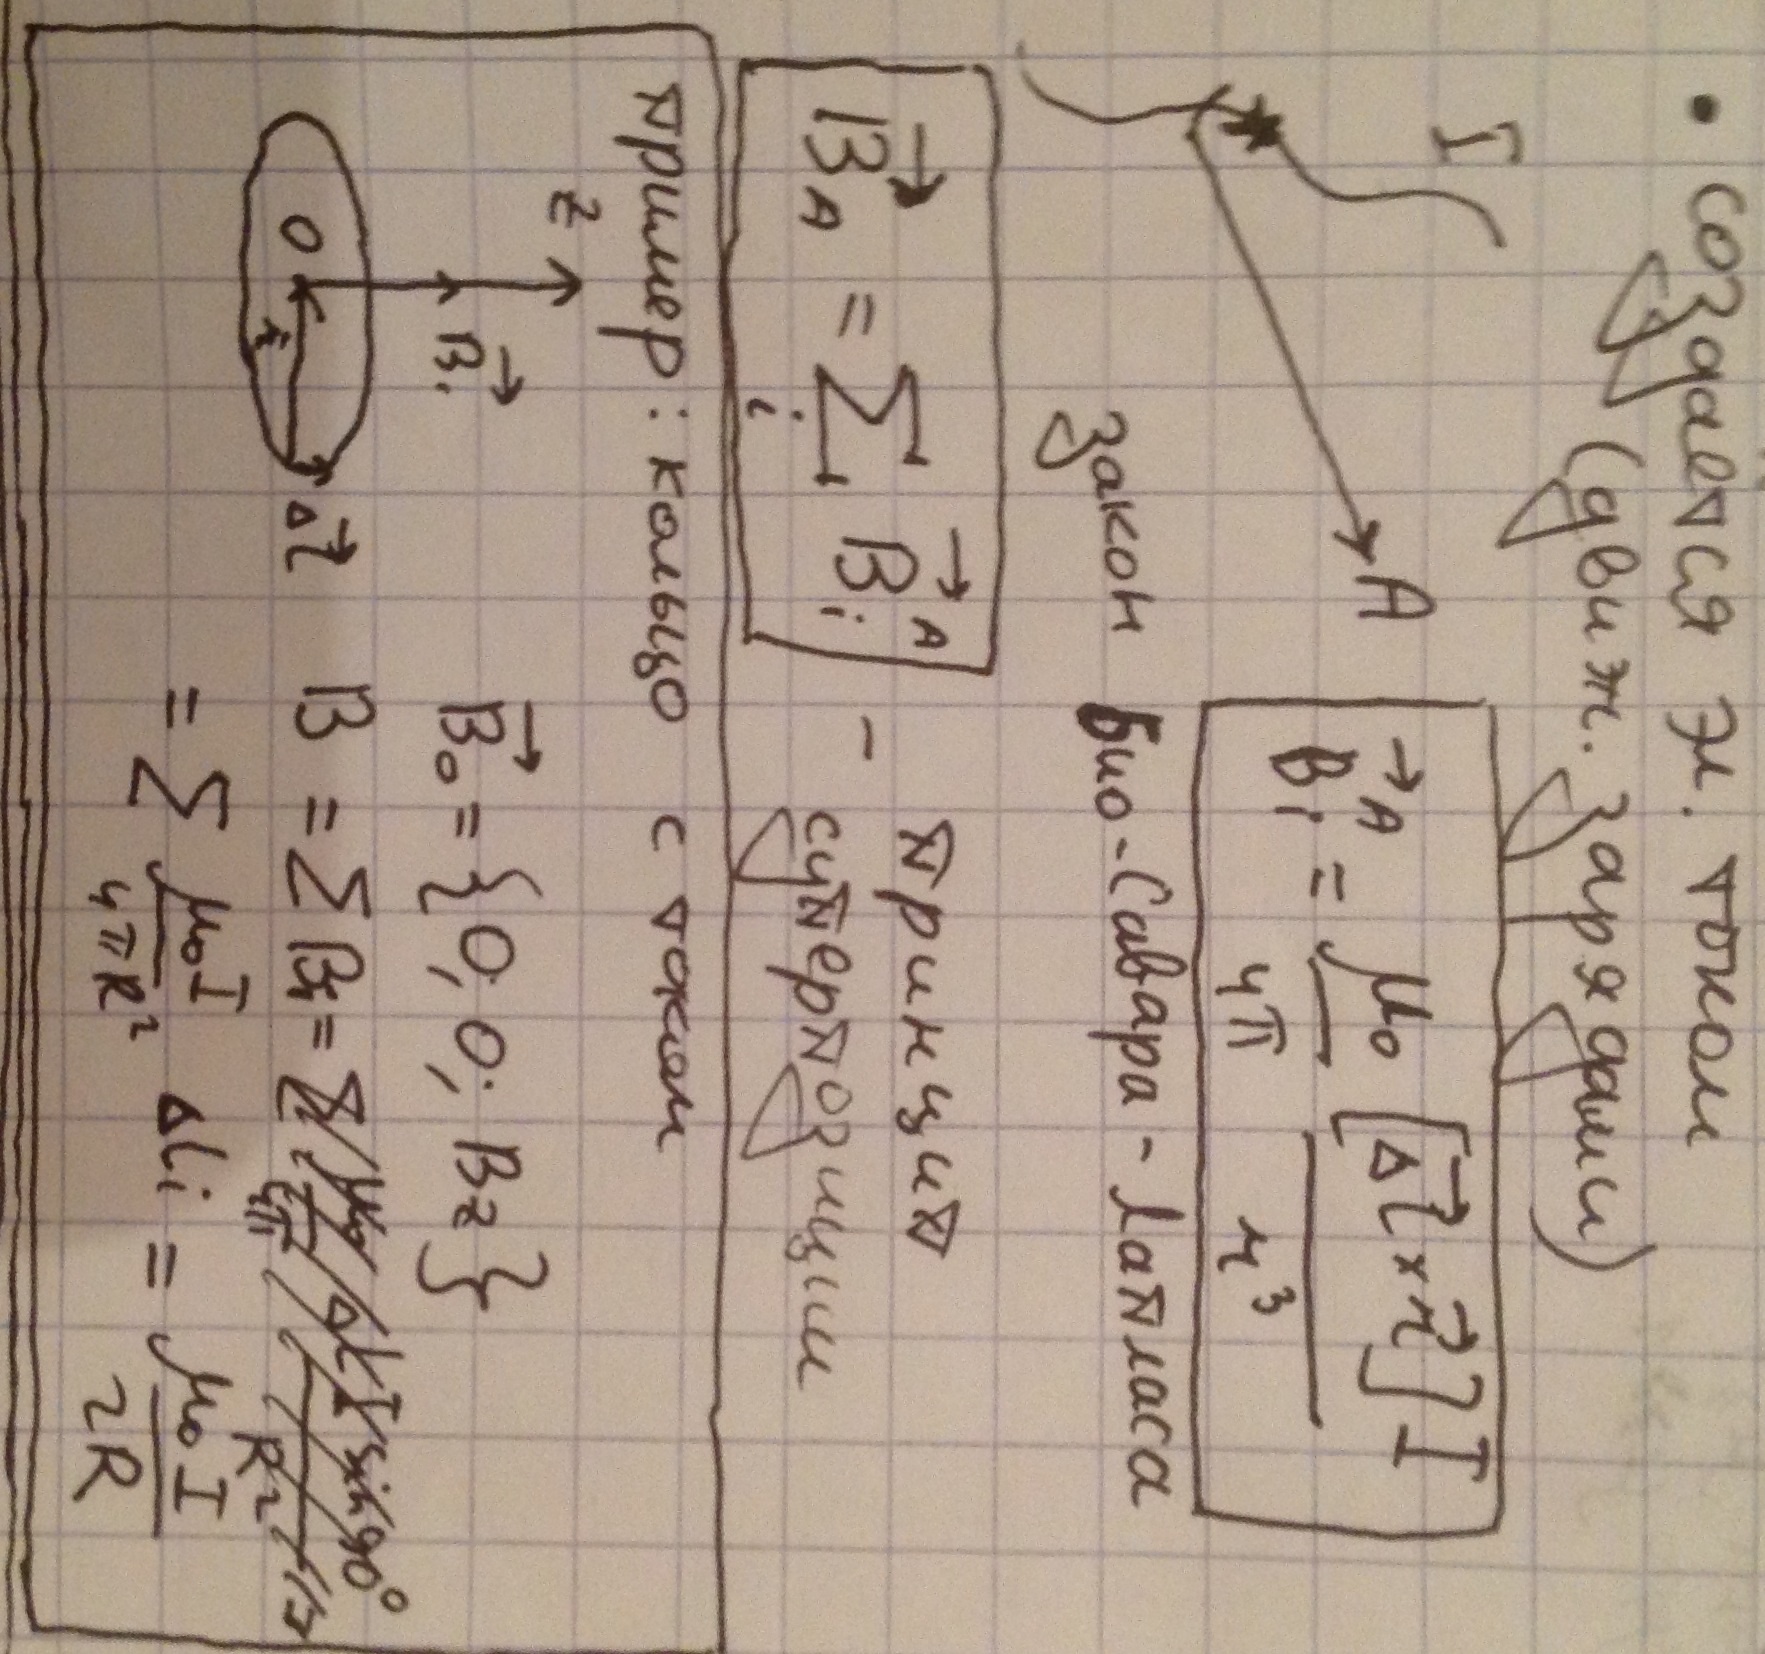 • создается эл. током
(движ. зарядами)
I
A
B⃗ᵢᴬ = μ₀/4π [Δl⃗ × r⃗] I / r³
закон Био-Савара-Лапласа
B⃗_A = Σᵢ B⃗ᵢᴬ - принцип
суперпозиции
пример: кольцо с током
z
B⃗ᵢ
O
r⃗
Δl⃗
B⃗₀ = {0, 0, B_z}
B = Σ Bᵢ =
= Σ μ₀I/4πR² Δlᵢ = μ₀I/2R